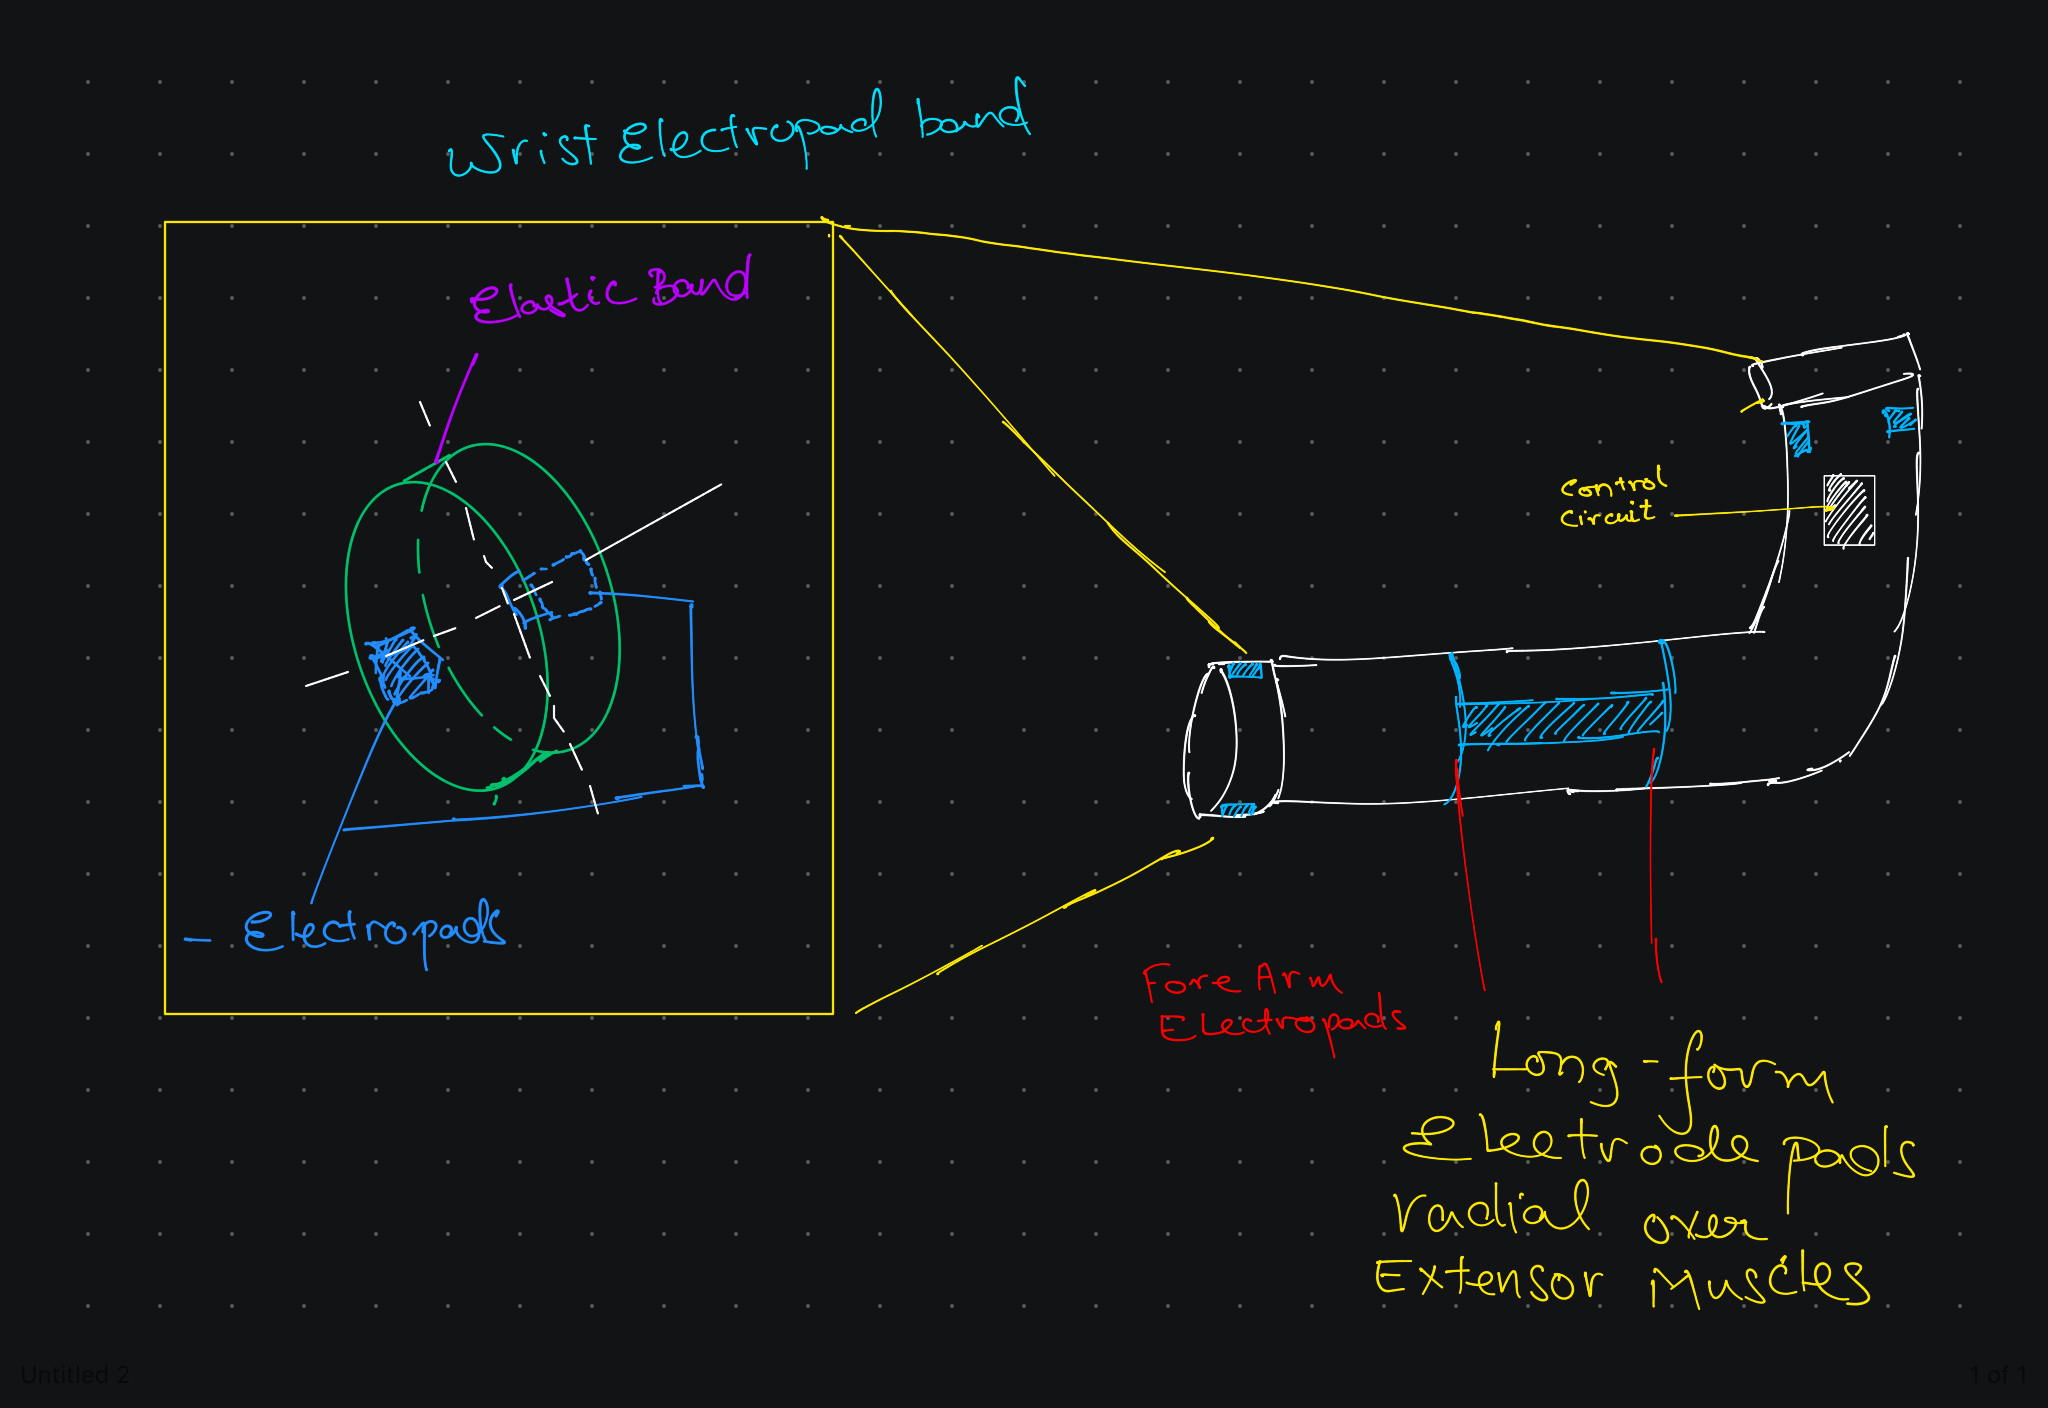 Wrist Electropad band
Elastic Band
Control
Circuit
- Electropads
Fore Arm
Electropads
Long-form
Electrode pads
radial over
Extensor Muscles
Untitled 2
1 of 1